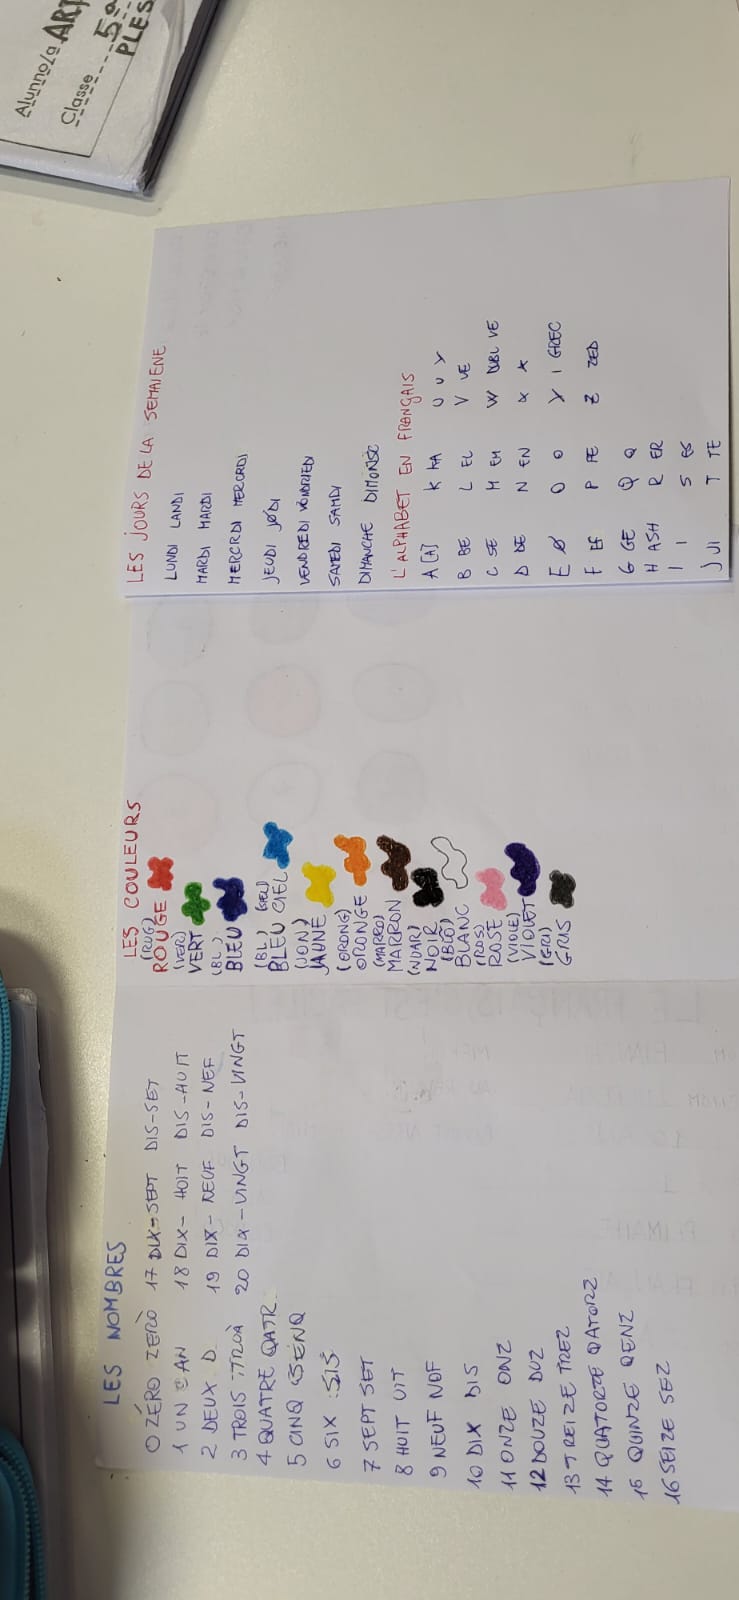 Alunno/a ART
Classe 5a
PLES
LES NOMBRES
0 ZÉRO ZERÒ
1 UN AN
2 DEUX D
3 TROIS TROÀ
4 QUATRE QATR
5 CINQ SENQ
6 SIX SIS
7 SEPT SET
8 HUIT UIT
9 NEUF NOF
10 DIX DIS
11 ONZE ONZ
12 DOUZE DUZ
13 TREIZE TREZ
14 QUATORZE QATORZ
15 QUINZE QENZ
16 SEIZE SEZ
17 DIX-SEPT DIS-SET
18 DIX-HOIT DIS-AUIT
19 DIX-NEUF DIS-NEF
20 DIX-VINGT DIS-VINGT
LES COULEURS
(RUG)
ROUGE
(VER)
VERT
(BL)
BLEU
(BL) (SIEL)
BLEU CIEL
(JON)
JAUNE
(ORONG)
ORONGE
(MARRO)
MARRON
(NUAR)
NOIR
(BLÒ)
BLANC
(ROS)
ROSE
(VIOLE)
VIOLET
(GRI)
GRIS
LES JOURS DE LA SEMAIENE
LUNDI LANDI
MARDI MARDI
MERCRDI MERCORDI
JEUDI JØDI
VENDREDI VONDRIEDI
SAMEDI SAMDI
DIMANCHE DIMONSC
L'ALPHABET EN FRANÇAIS
A [A] K KA U U Y
B BE L EL V VE
C SE M EM W DUBL VE
D DE N EN X X
E Ø O O Y I GREC
F EF P PE Z ZED
G GE Q Q
H ASH R ER
I I S ES
J JI T TE